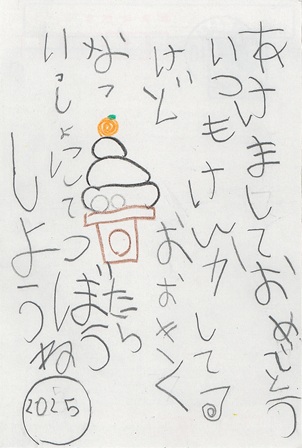 あけましておめでとう
いつもけんかしてる
けどおおきく
なったら
いっしょにてつぼう
しようね
2025